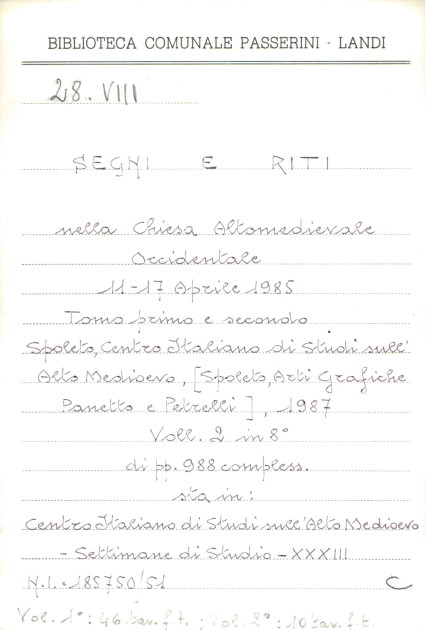 BIBLIOTECA COMUNALE PASSERINI - LANDI
28. VIII
SEGNI E RITI
nella Chiesa Altomedievale
Occidentale
11-17 Aprile 1985
Tomo primo e secondo
Spoleto, Centro Italiano di Studi sull'
Alto Medioevo, [Spoleto, Arti Grafiche
Panetto e Petrelli], 1987
Voll. 2 in 8°
di pp. 988 compless.
sta in:
Centro Italiano di Studi sull'Alto Medioevo
- Settimane di Studio - XXXIII
N.I. = 185750/51 C
Vol. 1°: 46 tav. f.t. ; Vol. 2°: 10 tav. f.t.